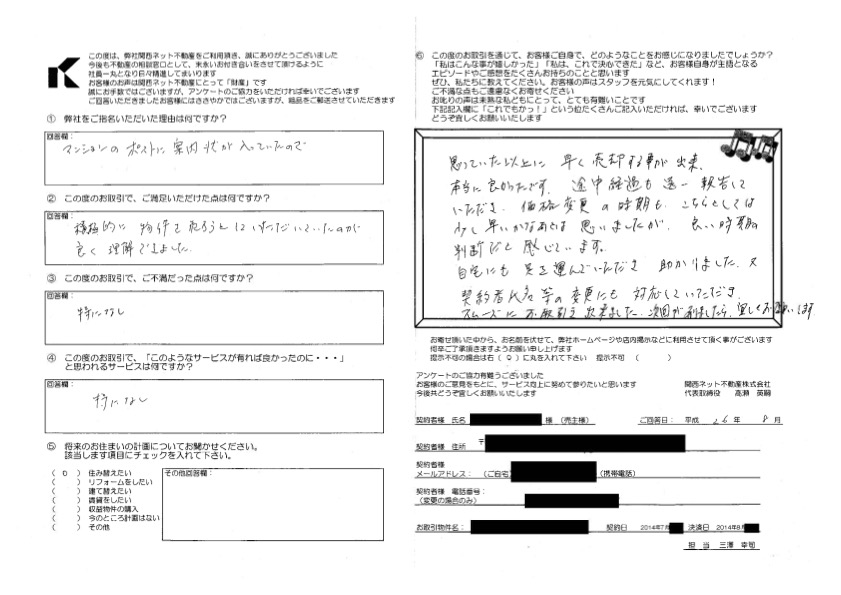 この度は、弊社関西ネット不動産をご利用頂き、誠にありがとうございました
今後も不動産の相談窓口として、末永いお付き合いをさせて頂けるように
社員一丸となり日々精進してまいります
お客様のお声は関西ネット不動産にとって「財産」です
誠にお手数ではございますが、アンケートのご協力をいただければ幸いでございます
ご回答いただきましたお客様にはささやかではございますが、粗品をご郵送させていただきます
① 弊社をご指名いただいた理由は何ですか?
回答欄:
マンションの ポストに 案内状が入っていたので
② この度のお取引で、ご満足いただけた点は何ですか?
回答欄:
積極的に 物件を売ろうとしていただいていたのが
良く 理解できました.
③ この度のお取引で、ご不満だった点は何ですか?
回答欄:
特になし
④ この度のお取引で、「このようなサービスが有れば良かったのに・・・」
と思われるサービスは何ですか?
回答欄:
特になし
⑤ 将来のお住まいの計画についてお聞かせください。
該当します項目にチェックを入れて下さい。
( O ) 住み替えたい
( ) リフォームをしたい
( ) 建て替えたい
( ) 賃貸をしたい
( ) 収益物件の購入
( ) 今のところ計画はない
( ) その他
その他回答欄:
⑥ この度のお取引を通じて、お客様ご自身で、どのようなことをお感じになりましたでしょうか?
「私はこんな事が嬉しかった」「私は、これで決心できた」など、お客様自身が主語となる
エピソードやご感想をたくさんお持ちのことと思います
ぜひ、私たちに教えてください。お客様の声はスタッフを元気にしてくれます!
ご不満な点もご遠慮なくお寄せください
お叱りの声は未熟な私どもにとって、とても有難いことです
下記記入欄に「これでもかっ!」という位たくさんご記入いただければ、幸いでございます
どうぞ宜しくお願いいたします
思っていた以上に 早く売却する事が出来、
本当に良かったです. 途中経過も逐一報告して
いただき. 価格変更の時期も. こちらとしては
少し早いかなあとは 思いましたが. 良い時期の
判断だと感じています。
自宅にも 足を運んでいただき 助かりました. 又
契約者氏名等の変更にも 対応していただき.
スムーズに お取引き出来ました. 次回が有りましたら. 宜しくお願いします
お寄せ頂いた中から、お名前を伏せて、弊社ホームページや店内掲示などに利用させて頂く事がございます
何卒ご了承頂きますようお願い申し上げます
提示不可の場合は右(○)に丸を入れて下さい 提示不可( )
アンケートのご協力有難うございました
お客様のご意見をもとに、サービス向上に努めて参りたいと思います
今後共どうぞ宜しくお願いいたします
関西ネット不動産株式会社
代表取締役 高瀬 英嗣
契約者様 氏名 様(売主様) ご回答日: 平成 26年 8月
契約者様 住所 〒
契約者様
メールアドレス: (ご自宅) (携帯電話)
契約者様 電話番号:
(変更の場合のみ)
お取引物件名: 契約日 2014年7月 決済日 2014年8月
担 当 三澤 幸司